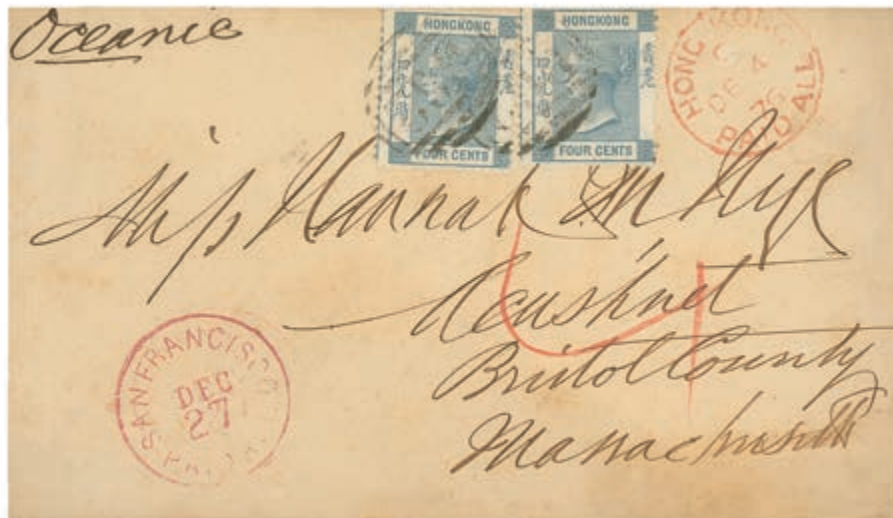 Oceanic
HONGKONG
香港
四先士
FOUR CENTS
HONGKONG
香港
四先士
FOUR CENTS
HONG KONG
DE
76
PAID ALL
Miss Hannah M Nye
Acushnet
Bristol County
Massachusetts
4
SAN FRANCISCO
DEC
27
PAID ALL